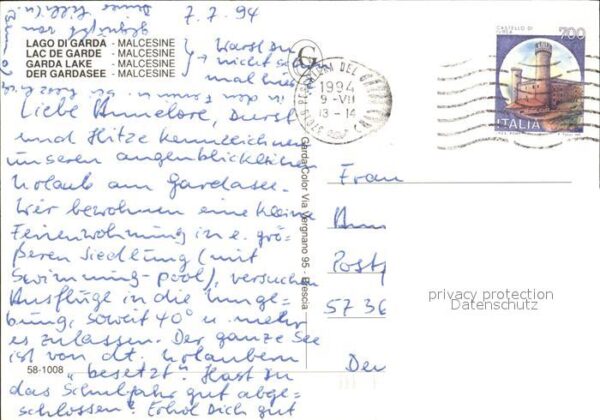 7.7.94
LAGO DI GARDA - MALCESINE
LAC DE GARDE - MALCESINE
GARDA LAKE - MALCESINE
DER GARDASEE - MALCESINE
Warst Du
nicht schon
mal hier
Liebe Annelore, Durst
und Hitze kennzeichnen
unseren augenblicklichen
Urlaub am Gardasee.
Wir bewohnen eine kleine
Ferienwohnung in e. grö-
ßeren Siedlung (mit
Swimming-pool), versuchen
Ausflüge in die Umge-
bung, soweit 40° u. mehr
es zulassen. Der ganze See
ist von dt. Urlaubern
"besetzt". Hast Du
das Schuljahr gut abge-
schlossen? Erhol Dich gut
58-1008
GardaColor Via Vergnano 95 - Brescia
G
1994
9-VII
13-14
CASTELLO DI
IVREA
700
ITALIA
Frau
Ann
Postf
5736
privacy protection
Datenschutz